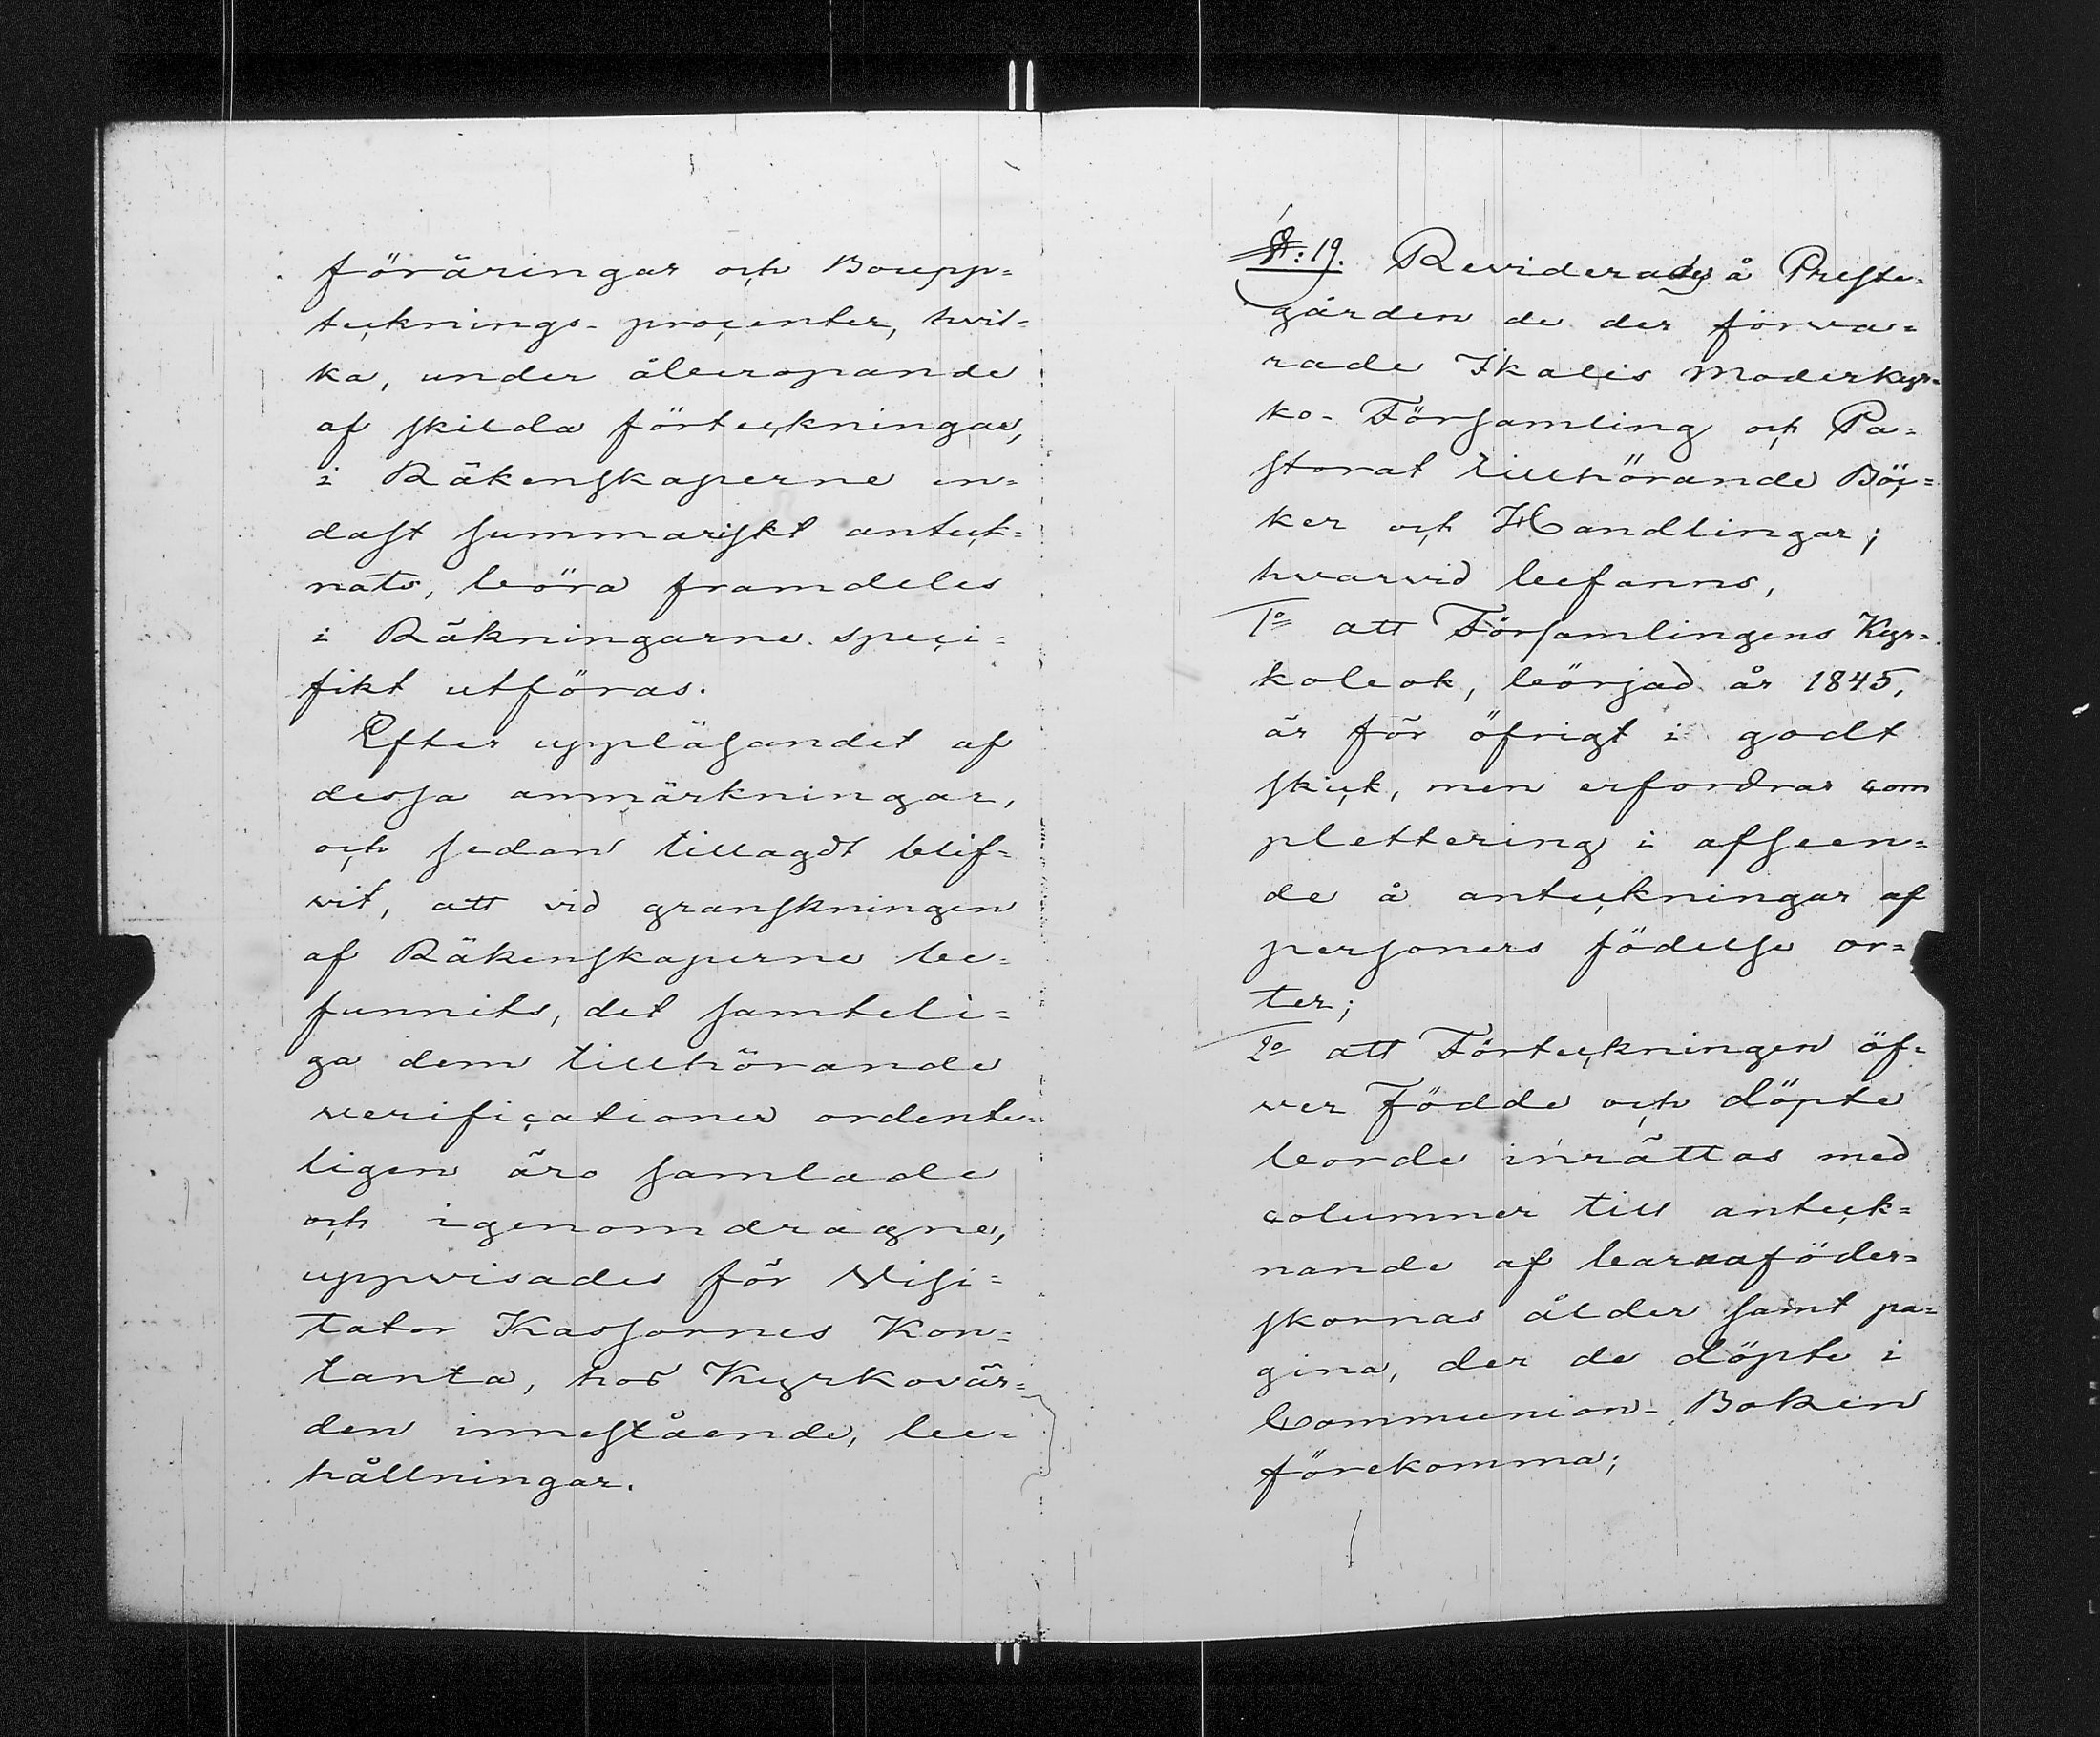 föräringar och Boupp=
tecknings-procenter, hvil=
ka, under åberopande
af skilda förteckningar,
i Räkenskaperne en=
dast summariskt anteck=
nats, böra framdeles
i Räkningarne speci=
fikt utföras.
Efter uppläsandet af
dessa anmärkningar,
och sedan tillagdt blif=
vit, att vid granskningen
af Räkenskaperne be=
funnits, det samteli=
ga dem tillhörande
verificationer ordente=
ligen äro samlade
och igenomdragne,
uppvisades för Visi=
tator Kassornes Kon=
tanta, hos Kyrkovär=
den innestående, be=
hållningar.
§: 19. Reviderades å Preste=
gården de der förva=
rade Ikalis Moderkyr=
ko- Församling och Pa=
storat tillhörande Böc=
ker och Handlingar;
hvarvid befanns,
1o att Församlingens Kyr=
kobok, börjad år 1845,
är för öfrigt i godt
skick, men erfordrar com
plettering i afseen=
de å anteckningar af
personers födelse or=
ter;
2o att Förteckningen öf=
ver Födde och döpte
borde inrättas med
columner till anteck=
nande af barnaföder=
skornas ålder samt pa=
gina, der de döpte i
Communion-Boken
förekomma;